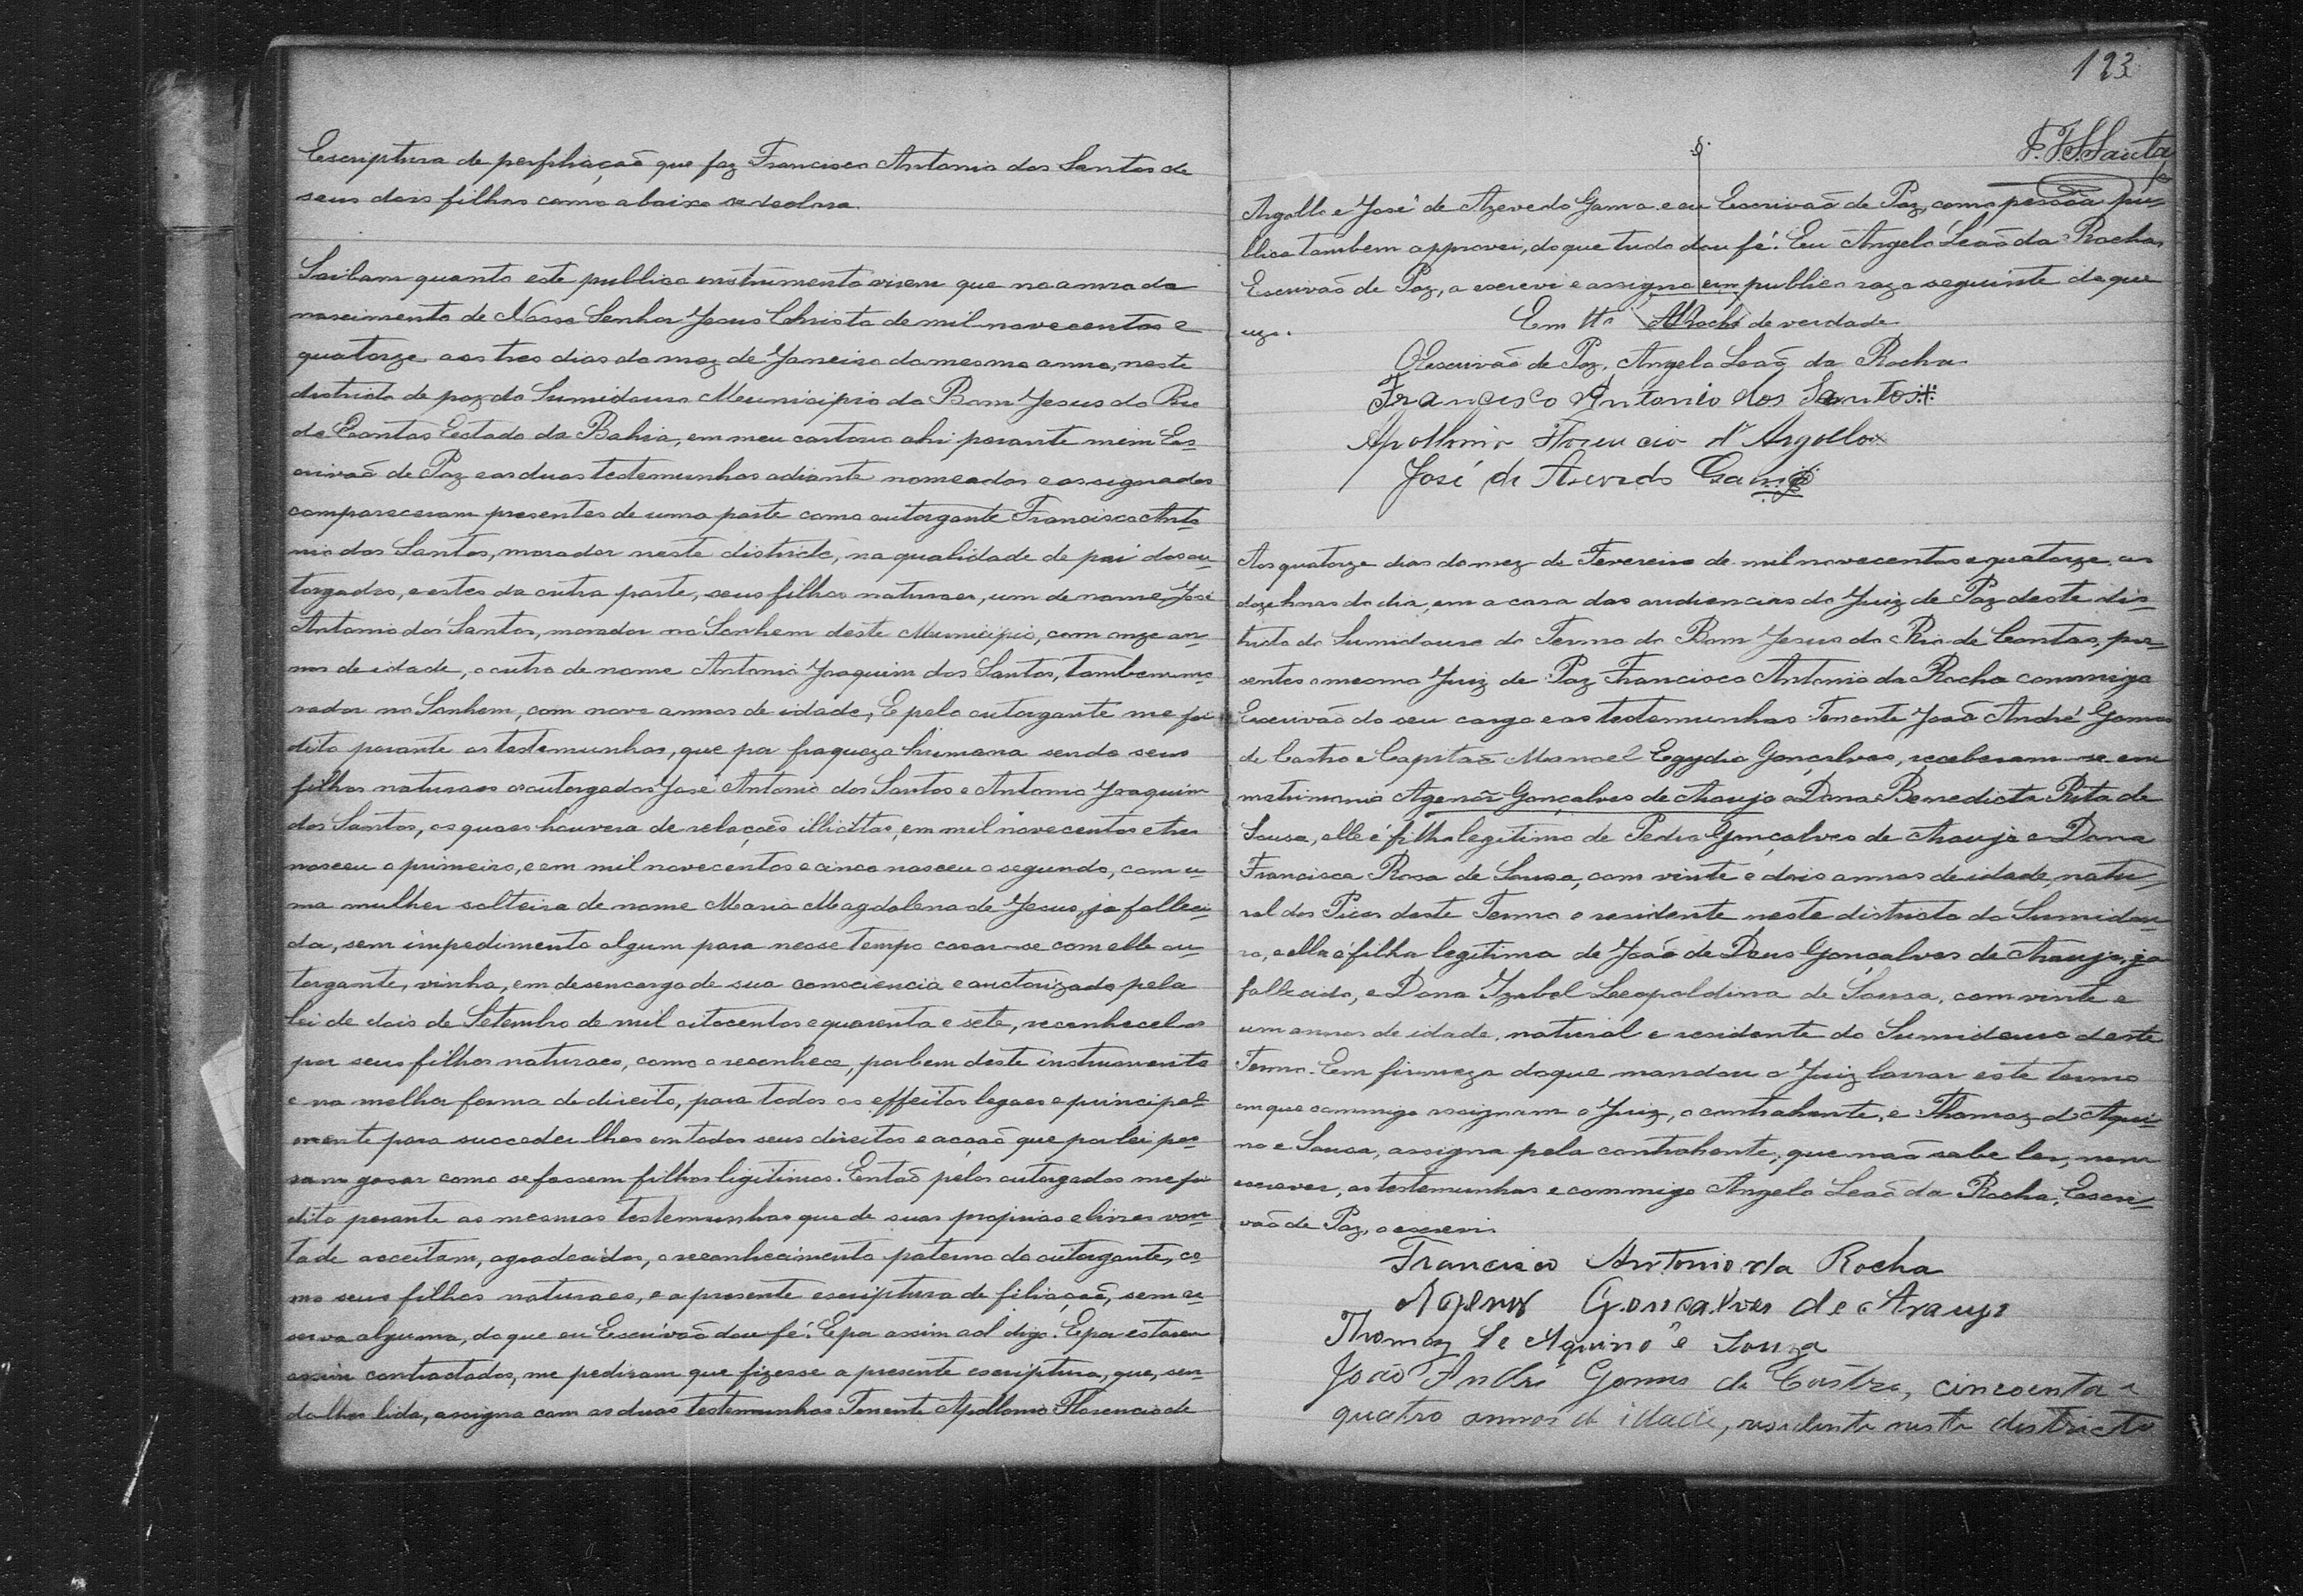 Escriptura de perfilhação que faz Francisco Antonio dos Santos de
seus dois filhos como abaixo se declara.
Saibam quanto este publico instrumento virem que no anno do
nascimento de Nosso Senhor Jesus Christo de mil novecentos e
quatorze aos tres dias do mez de Janeiro do mesmo anno, neste
districto de paz do Sumidouro Municipio do Bom Jesus do Rio
de Contas Estado da Bahia, em meu cartorio ahi perante mim Es-
crivão de Paz e as duas testemunhas adiante nomeadas e assignadas
compareceram presentes de uma parte como outorgante Francisco Anto-
nio dos Santos, morador neste districto, na qualidade de pai dos ou-
torgados, e estes da outra parte, seus filhos naturaes, um de nome José
Antonio dos Santos, morador no Sonhem deste Municipio, com onze an-
nos de idade, o outro de nome Antonio Joaquim dos Santos, tambem mo-
rador no Sonhem, com nove annos de idade, E pelo outorgante me foi
dito perante as testemunhas, que por fraqueza humana sendo seus
filhos naturaes os outorgados José Antonio dos Santos e Antonio Joaquim
dos Santos, os quaes houvera de relação illicitas, em mil novecentos e tres
nasceu o primeiro, e em mil novecentos e cinco nasceu o segundo, com u-
ma mulher solteira de nome Maria Magdalena de Jesus, ja falleci-
da, sem impedimento algum para nesse tempo casar-se com elle ou-
torgante, vinha, em desencargo de sua consciencia e auctorizado pela
lei de dois de Setembro de mil oitocentos e quarenta e sete, reconhecel-os
por seus filhos naturaes, como o reconhece, por bem deste instrumento
e na melhor forma de direito, para todos os effeitos legaes e principal-
mente para succeder-lhes em todos seus direitos e acção que por lei pos-
sam gosar como se fossem filhos ligitimos. Então pelos outorgados me foi
dito perante as mesmas testemunhas que de suas proprias e livres von-
tade acceitam, agradecidos, o reconhecimento paterno do outorgante, co-
mo seus filhos naturaes, e a presente escriptura de filiação, sem re-
serva alguma, do que eu Escrivão dou fé. E por assim aol digo. E por estarem
assim contractados, me pediram que fizesse a presente escriptura, que, sen-
do-lhes lida, assigna com as duas testemunhas Tenente Apollonio Florencio de
123
F. F. S. Santa
Argollo e José de Azevedo Gama. e eu Escrivão de Paz, como pessoa pu-
blica tambem approvei, do que tudo dou fé. Eu Angelo Leão da Rocha,
Escrivão de Paz, o escrevi e assigno em publico e raso seguinte de que
uzo.
Em tto ALRocha de verdade
O Escrivão de Paz, Angelo Leão da Rocha
Francisco Antonio dos Santos
Apollonio Florencio d'Argollo
José de Azevedo Gama
Aos quatorze dias do mez de Fevereiro de mil novecentos e quatorze, as
doze horas do dia, em a casa das audiencias do Juiz de Paz deste dis-
tricto do Sumidouro do Termo do Bom Jesus do Rio de Contas, pre-
sentes o mesmo Juiz de Paz Francisco Antonio da Rocha commigo
Escrivão do seu cargo e as testemunhas Tenente João André Gomes
de Castro e Capitão Manoel Egydio Gonçalves, receberam-se em
matrimonio Agenôr Gonçalves de Araujo e Dona Benedicta Rita de
Sousa, elle é filho legitimo de Pedro Gonçalves de Araujo e Dona
Francisca Rosa de Sousa, com vinte e dois annos de idade, natu-
ral dos Picos deste Termo e residente neste districto do Sumidou-
ro, e ella é filha legitima de João de Deus Gonçalves de Araujo, ja
fallecido, e Dona Izabel Leopoldina de Sousa, com vinte e
um annos de idade, natural e residente do Sumidouro deste
Termo. Em firmeza do que mandou o Juiz lavrar este termo
em que commigo assignam o Juiz, o contrahente, e Thomaz de Aqui-
no e Sousa, assigna pela contrahente, que não sabe ler, nem
escrever, as testemunhas e commigo Angelo Leão da Rocha, Escri-
vão de Paz, o escrevi.
Francisco Antonio da Rocha
Agenor Gonçalves de Araujo
Thomaz de Aquino e Souza
João André Gomes de Castro, cincoenta e
quatro annos de idade, residente neste districto